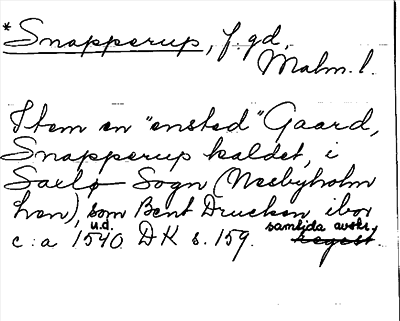 *Snapperup, f. gd.
Malm. l.
Item en "ensted" Gaard,
Snapperup kaldet, i
Saxlø Sogn (Næsbyholm
Len), som Bent Drucken ibor
u.d. samtida avskr.
c:a 1540. DK s. 159. Regest.